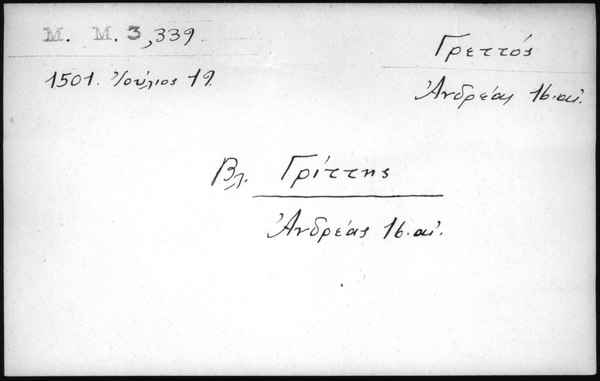 Μ. Μ. 3,339
1501. Ἰούλιος 19.
Γρεττός
Ἀνδρέας 16.αἰ.
Βλ. Γρίττης
Ἀνδρέας 16.αἰ.